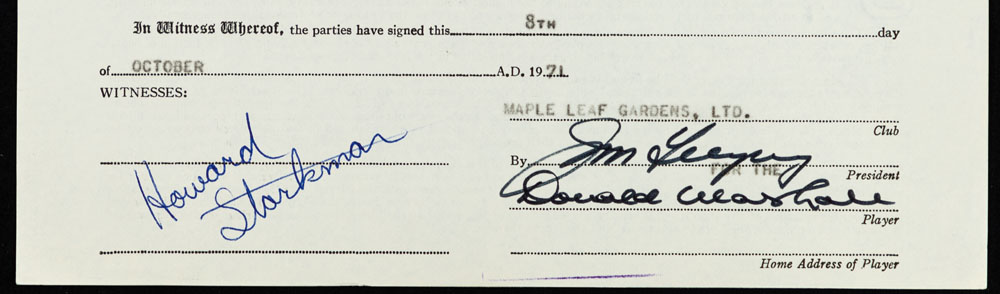 In Witness Whereof, the parties have signed this 8TH day
of OCTOBER A.D. 1971.
WITNESSES:
MAPLE LEAF GARDENS, LTD.
Club
Howard Starkman
By Jim Gregory
FOR THE President
Donald Marshall
Player
Home Address of Player